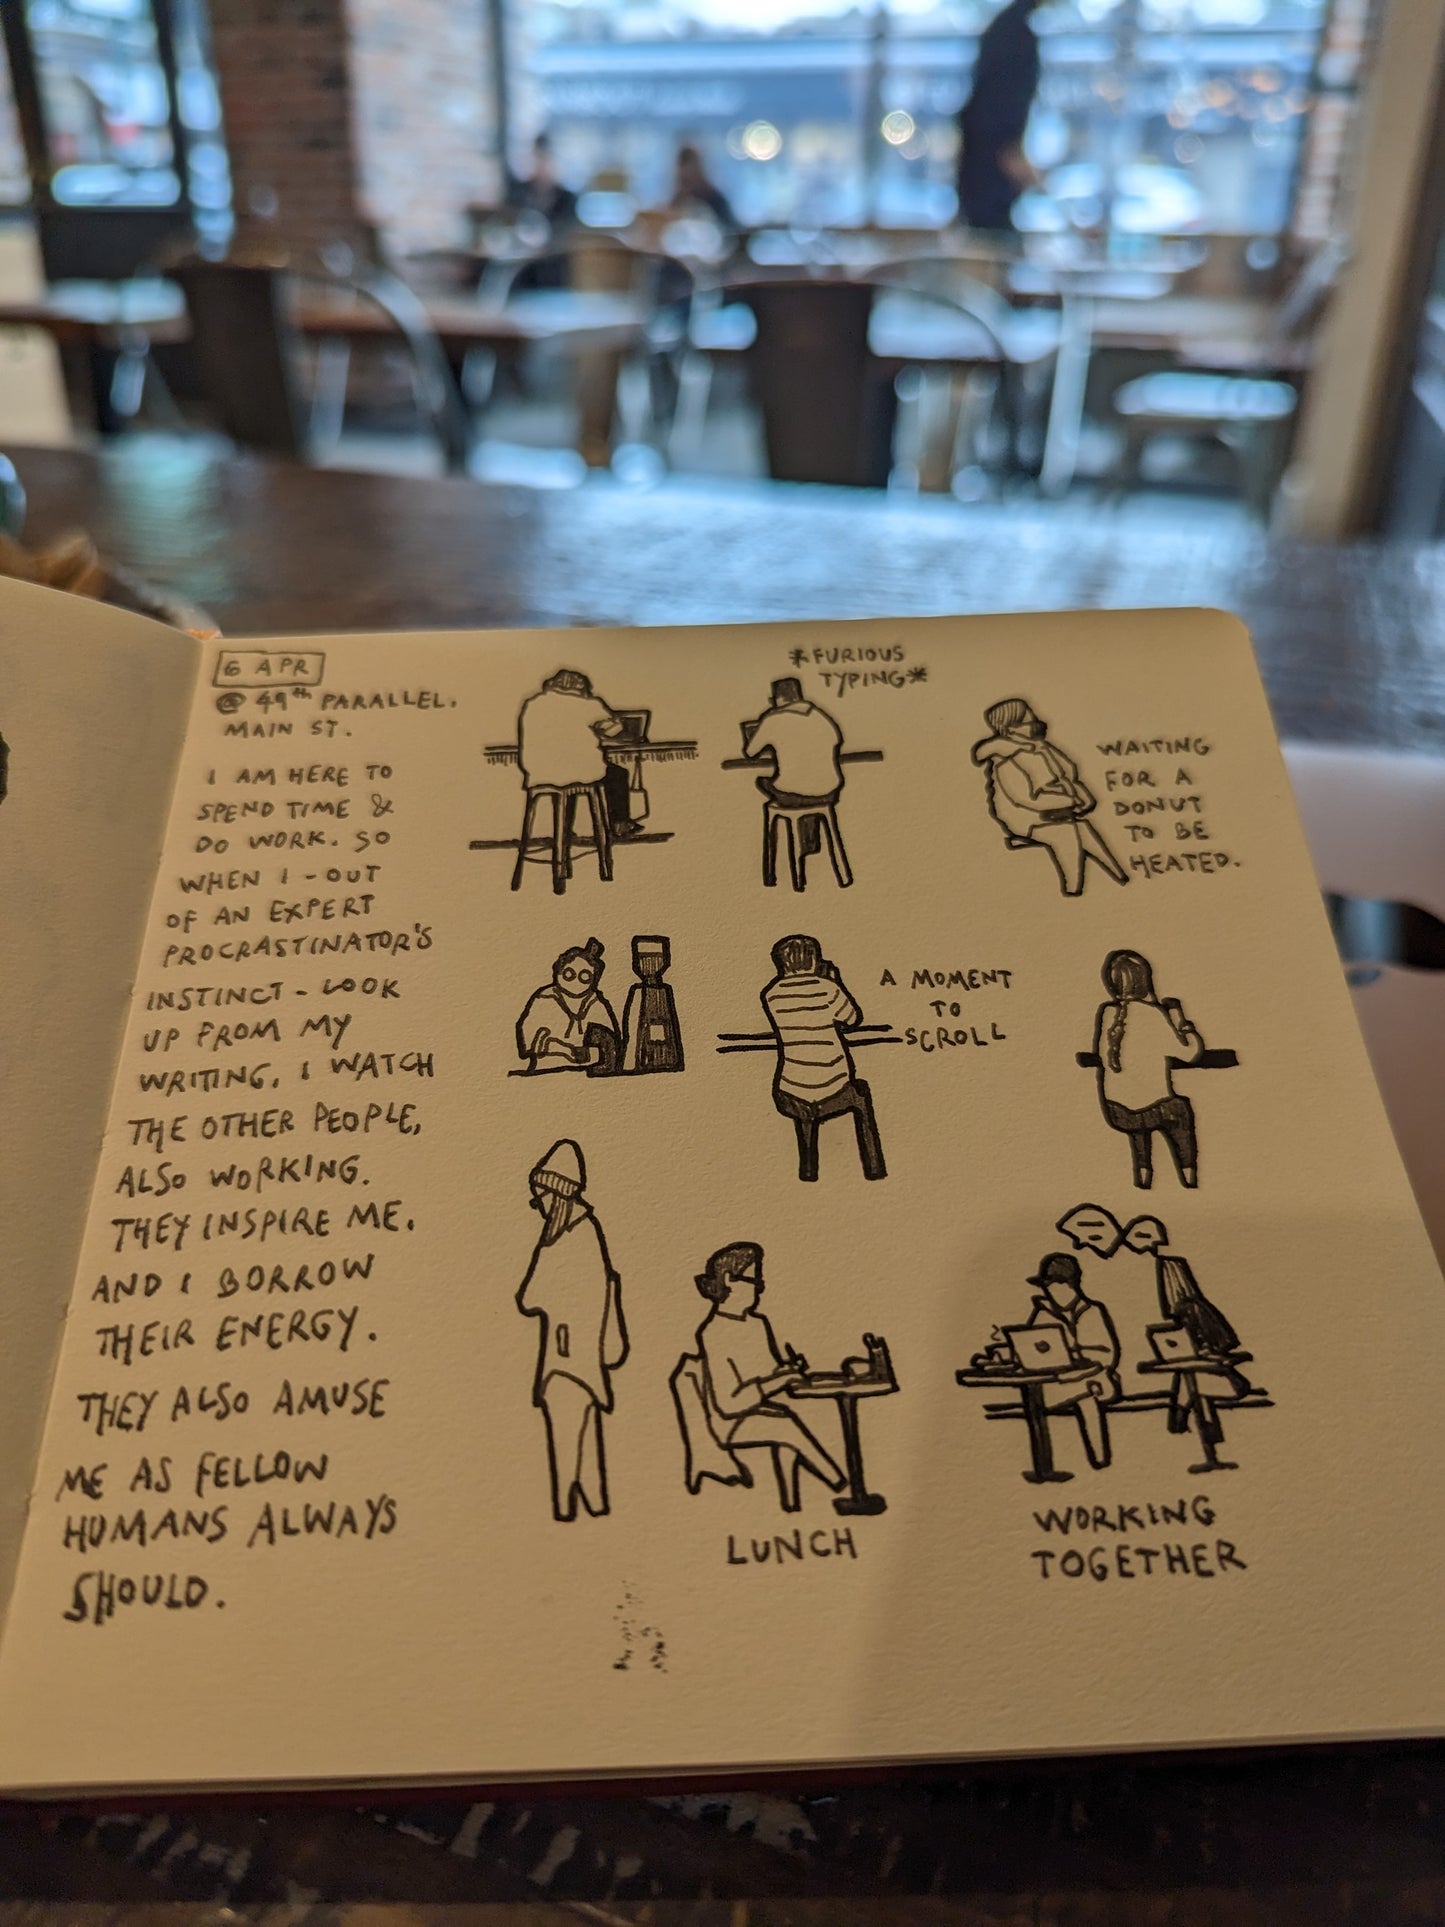 6 APR
@ 49th PARALLEL.
MAIN ST.
I AM HERE TO
SPEND TIME &
DO WORK. SO
WHEN I - OUT
OF AN EXPERT
PROCRASTINATOR'S
INSTINCT - LOOK
UP FROM MY
WRITING, I WATCH
THE OTHER PEOPLE,
ALSO WORKING.
THEY INSPIRE ME.
AND I BORROW
THEIR ENERGY.
THEY ALSO AMUSE
ME AS FELLOW
HUMANS ALWAYS
SHOULD.
*FURIOUS
TYPING*
WAITING
FOR A
DONUT
TO BE
HEATED.
A MOMENT
TO
SCROLL
LUNCH
WORKING
TOGETHER